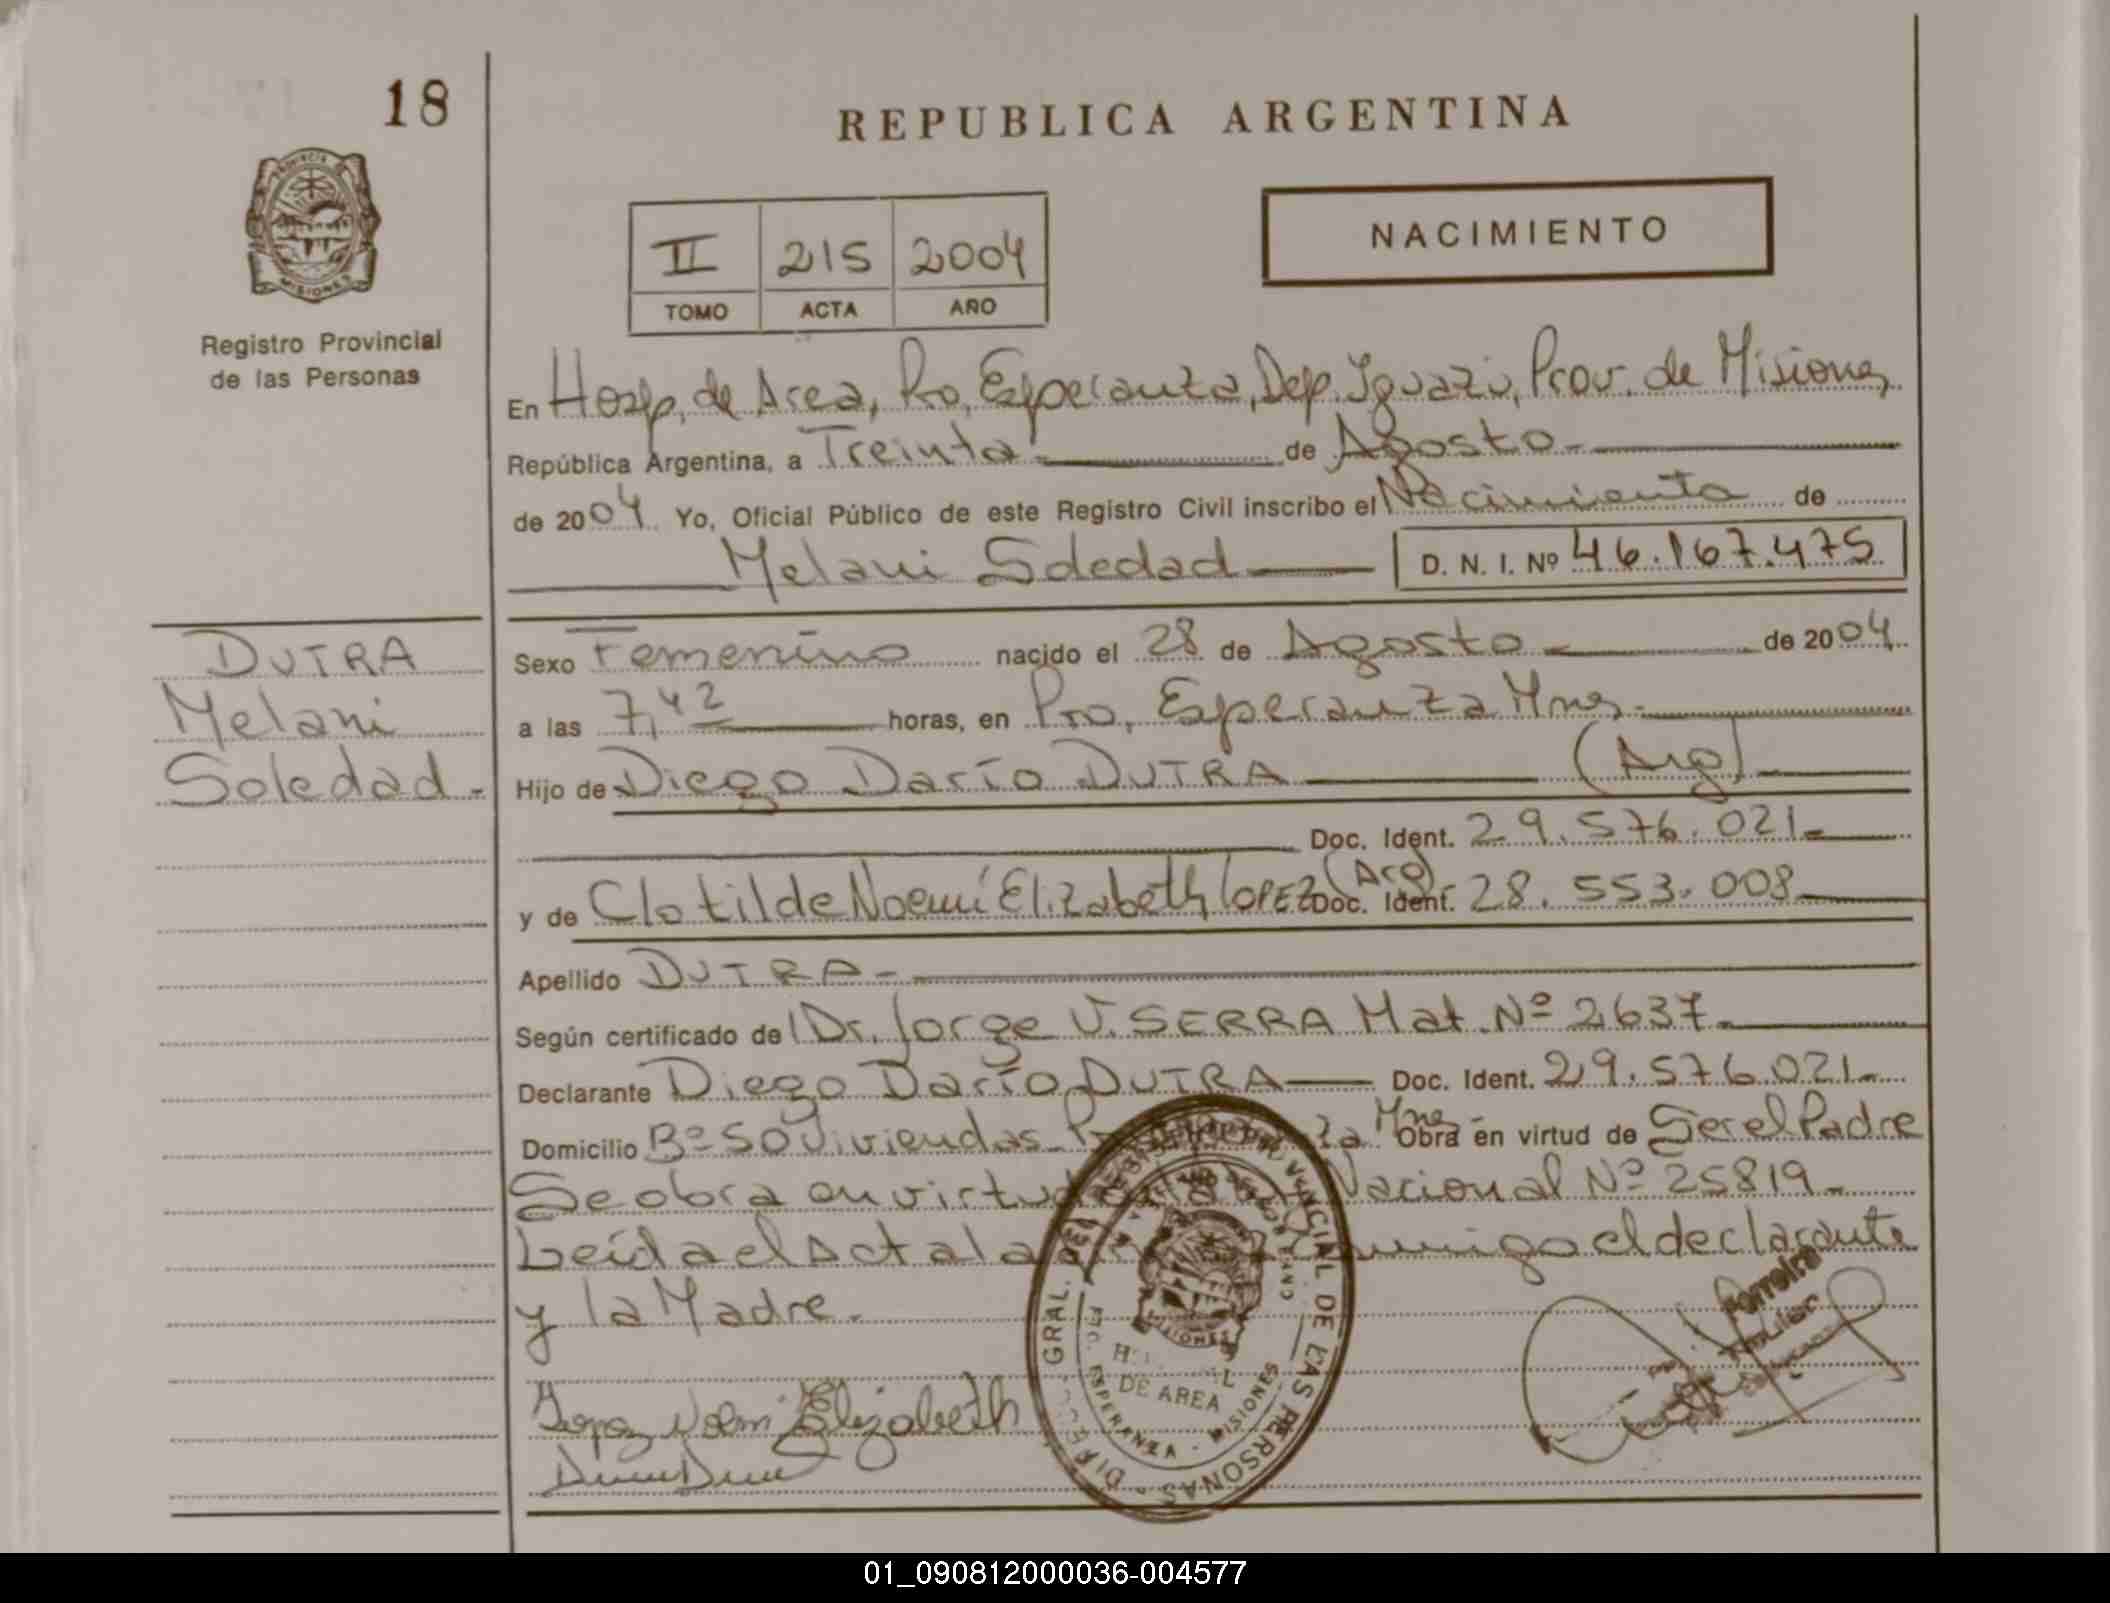 18
REPUBLICA ARGENTINA
PROVINCIA DE
MISIONES
Registro Provincial
de las Personas
II 215 2004
TOMO ACTA AÑO
NACIMIENTO
En Hosp. de Area, Pto, Esperanza, Dep. Iguazú, Prov. de Misiones
República Argentina, a Treinta de Agosto.
de 2004 Yo, Oficial Público de este Registro Civil inscribo el Nacimiento de
Melani Soledad D. N. I. Nº 46.167.475
DUTRA
Melani
Soledad.
Sexo Femenino nacido el 28 de Agosto de 2004
a las 7,42 horas, en Pto, Esperanza Mnes.
Hijo de Diego Darío DUTRA (Arg)
Doc. Ident. 29.576.021
y de Clotilde Noemí Elizabeth LOPEZ (Arg) Doc. Ident. 28.553.008
Apellido DUTRA
Según certificado de Dr. Jorge V. SERRA Mat. Nº 2637
Declarante Diego Darío DUTRA Doc. Ident. 29.576.021
Domicilio Bº 50 Viviendas Mnes Obra en virtud de Ser el Padre
Se obra en virtud Nacional Nº 25819
Leída el Acta la conmigo el declarante
y la Madre.
Lopez Noemi Elizabeth
GRAL. DEL REGISTRO PROVINCIAL DE LAS PERSONAS
DE AREA
PTO. ESPERANZA - MISIONES
Ferreira
01_090812000036-004577